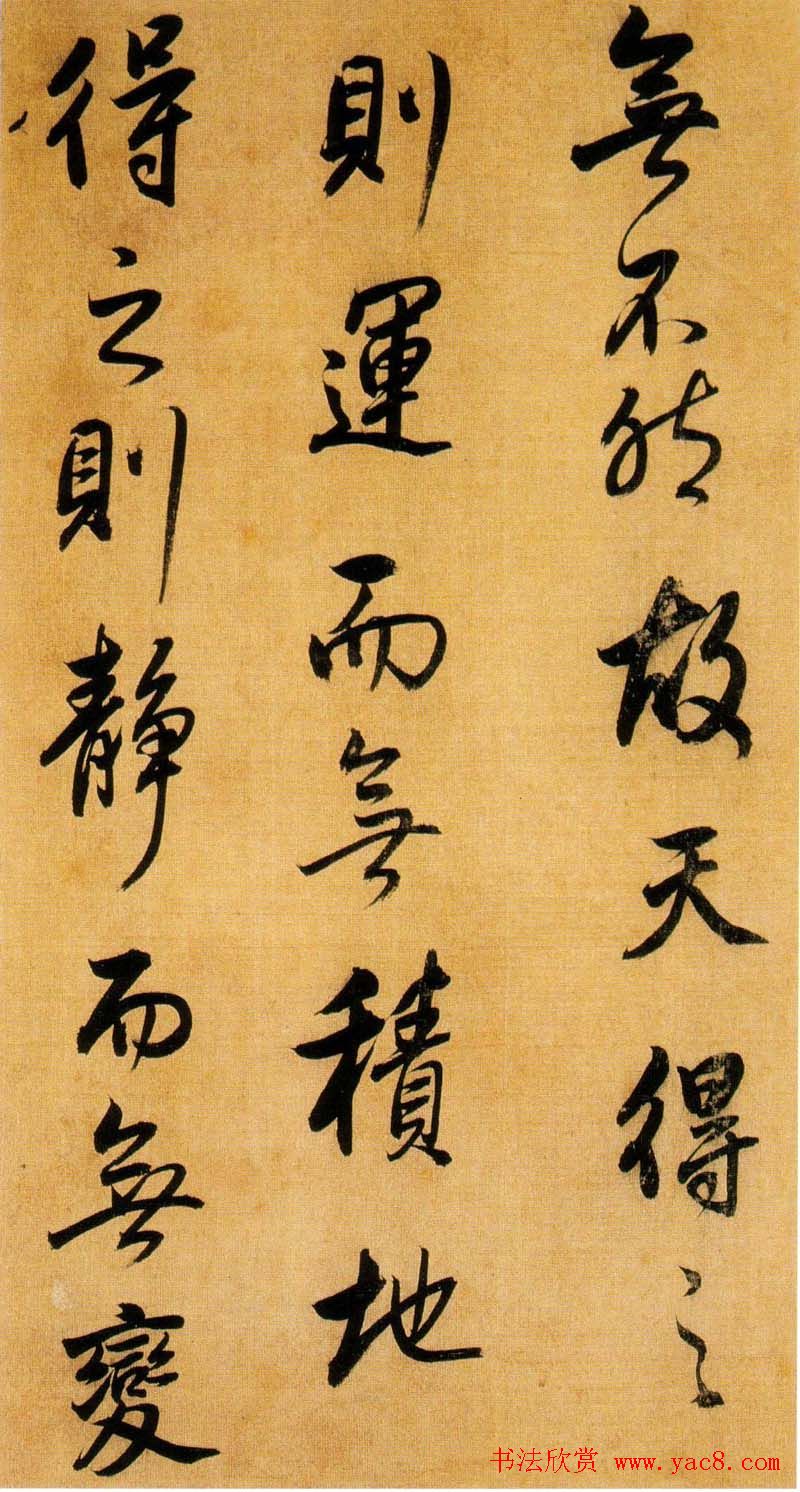 無不然故天得之
則運而無積地
得之則靜而無變
书法欣赏 www.yac8.com